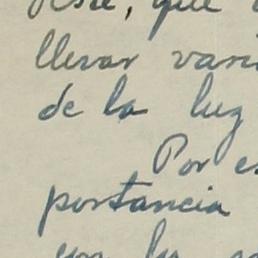 que
llevar vari
de la luz
Por es
portancia